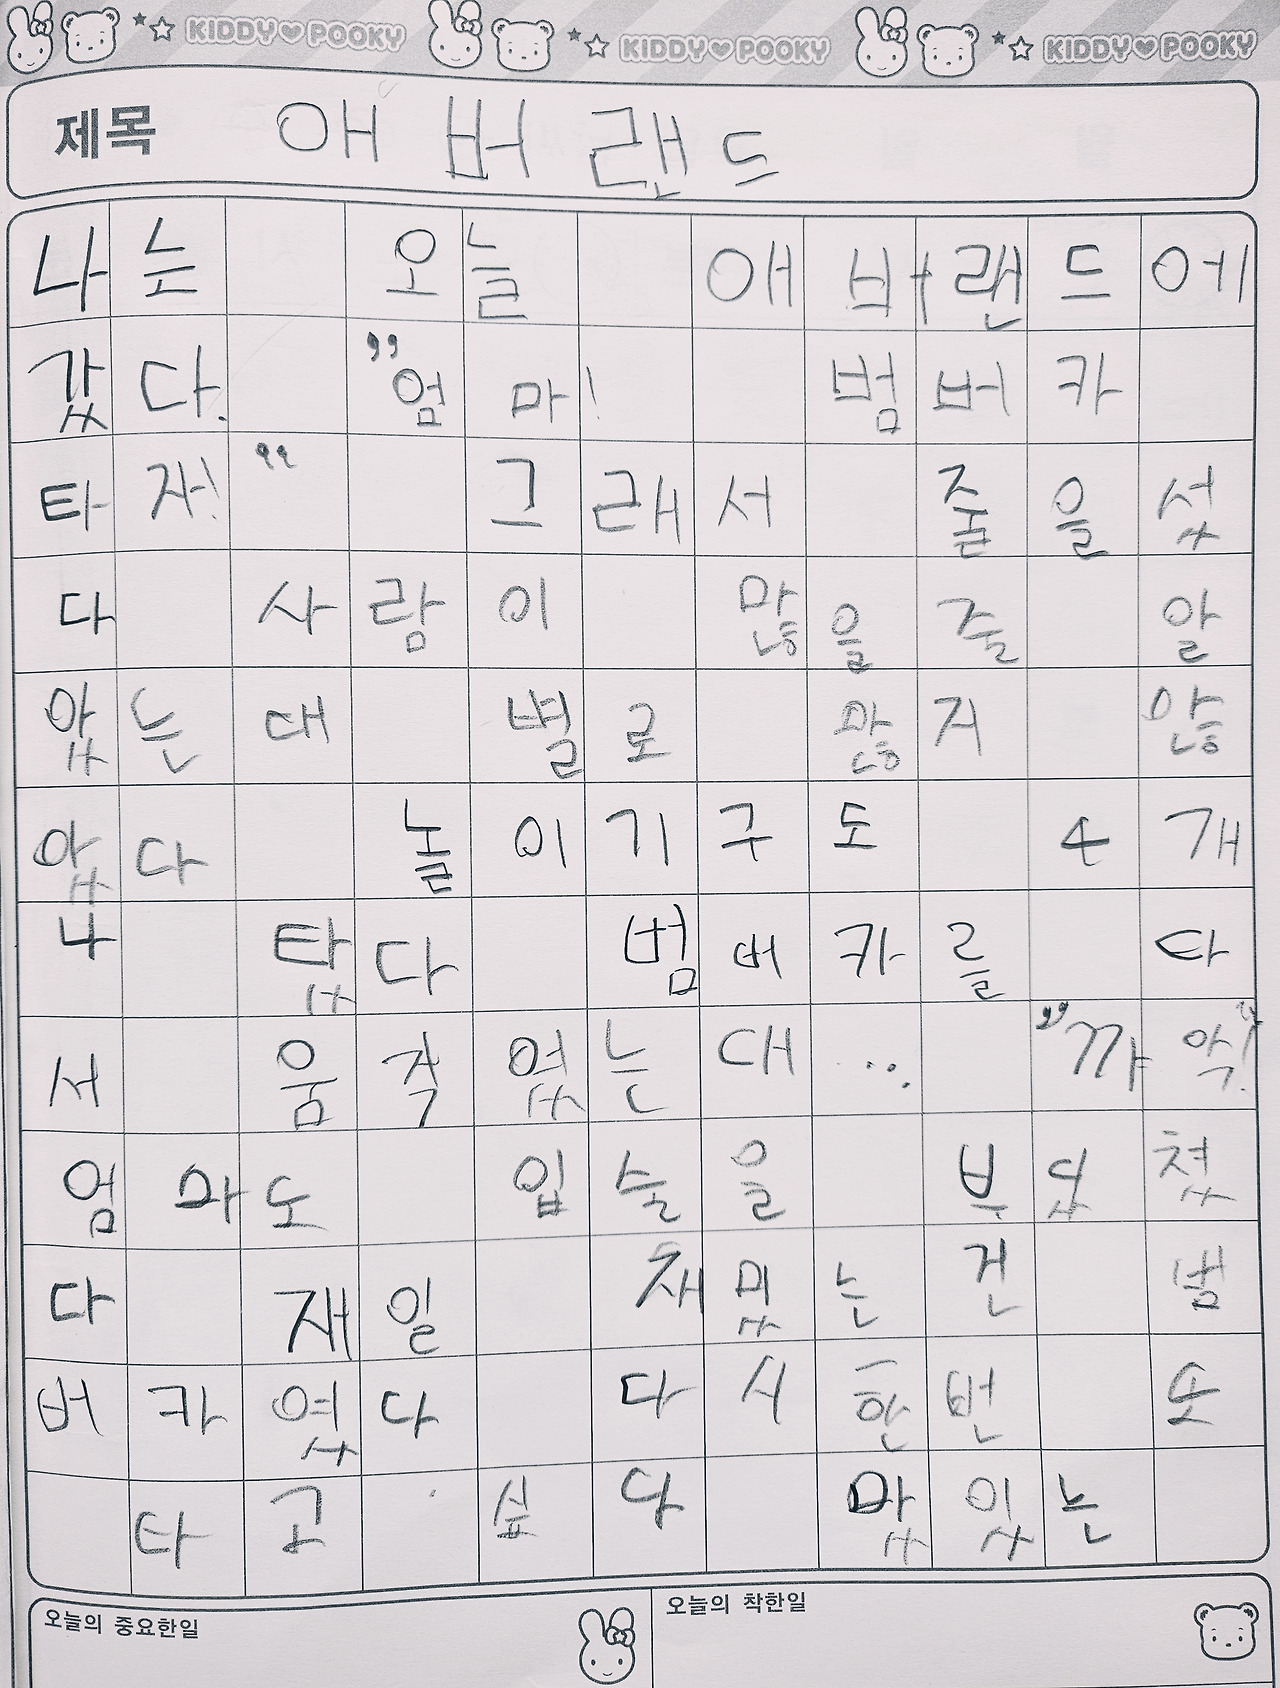 KIDDY♥POOKY KIDDY♥POOKY KIDDY♥POOKY
제목 애버랜드
나는 오늘 애버랜드에
갔다. "엄마! 범버카
타자!" 그래서 줄을 섰
다 사람이 많을줄 알
았는대 별로 많지 않
았다 놀이기구도 4개
나 탔다 범버카를 타
서 움직였는대... "꺄악!"
엄마도 입술을 부딨쳤
다 재일 재밌는건 범
버카였다 다시한번 또
타고 싶다 맛있는
오늘의 중요한일 오늘의 착한일